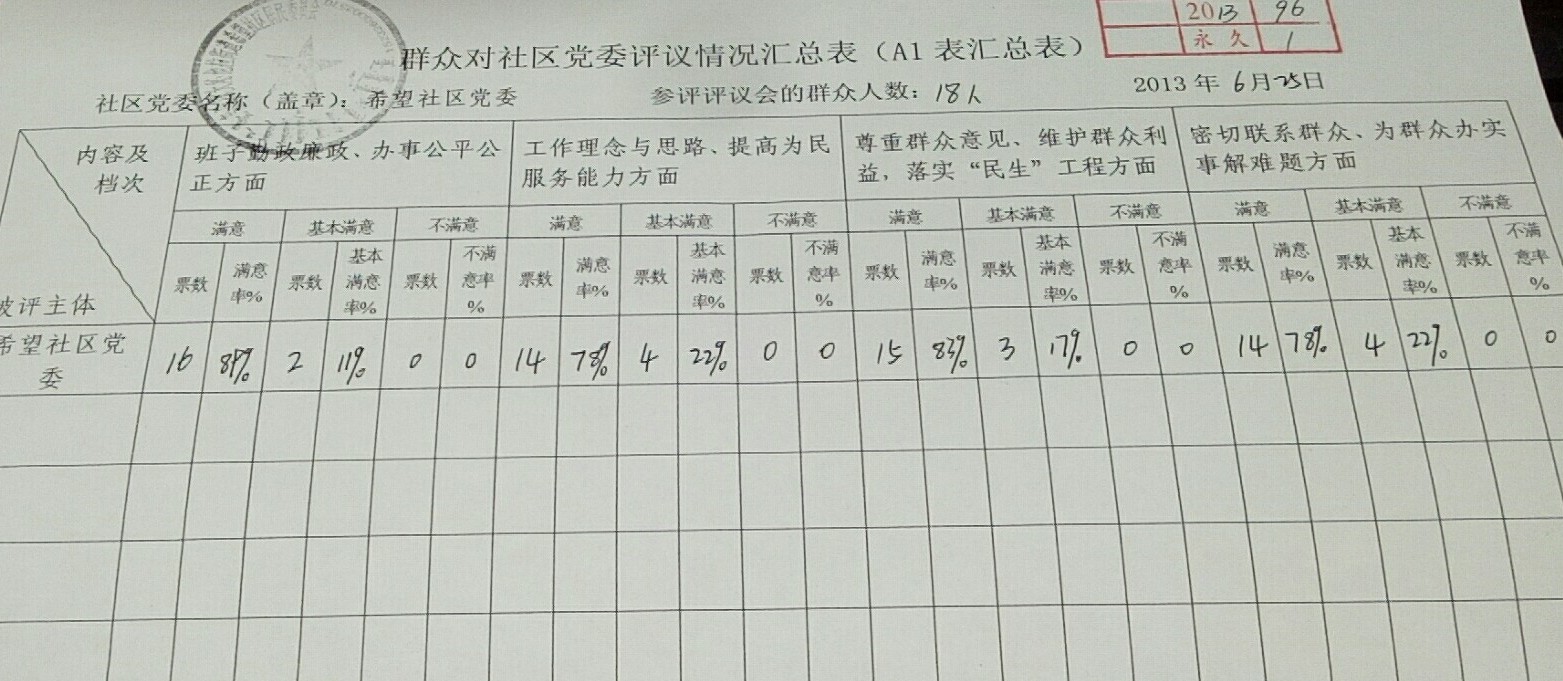 2013 96
永久 1
群众对社区党委评议情况汇总表（A1 表汇总表）
社区党委名称（盖章）：希望社区党委 参评评议会的群众人数：18人 2013 年 6月25日
内容及档次
被评主体
班子勤政廉政、办事公平公
正方面
工作理念与思路、提高为民
服务能力方面
尊重群众意见、维护群众利
益，落实“民生”工程方面
密切联系群众、为群众办实
事解难题方面
满意 基本满意 不满意 满意 基本满意 不满意 满意 基本满意 不满意 满意 基本满意 不满意
票数 满意率% 票数 基本满意率% 票数 不满意率% 票数 满意率% 票数 基本满意率% 票数 不满意率% 票数 满意率% 票数 基本满意率% 票数 不满意率% 票数 满意率% 票数 基本满意率% 票数 不满意率%
希望社区党委 16 89% 2 11% 0 0 14 78% 4 22% 0 0 15 83% 3 17% 0 0 14 78% 4 22% 0 0